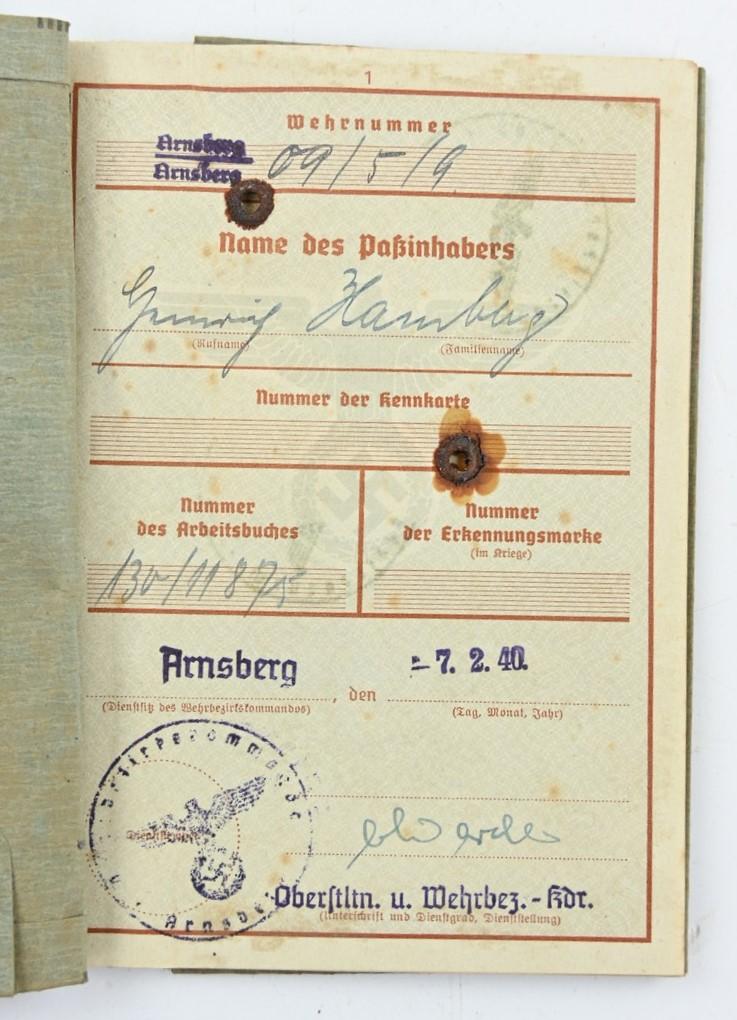 1
Wehrnummer
Arnsberg
Arnsberg 09/5/9
Name des Paßinhabers
Heinrich Hamberg
(Rufname) (Familienname)
Nummer der Kennkarte
Nummer des Arbeitsbuches
Nummer der Erkennungsmarke
(im Kriege)
130/11875
Arnsberg, den -7. 2. 40.
(Dienstsitz des Wehrbezirkskommandos) (Tag, Monat, Jahr)
Arnsberg
Oberstltn. u. Wehrbez.-Kdr.
(Unterschrift und Dienstgrad, Dienststellung)